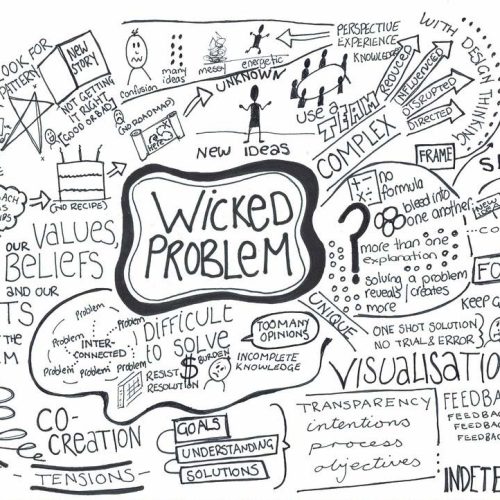 LOOK FOR
PATTERN
NEW
STORY
NOT GETTING
IT RIGHT
(GOOD OR BAD)
confusion
many
ideas
messy
energetic
UNKNOWN
(NO ROADMAP)
HERE
NEW IDEAS
PERSPECTIVE
EXPERIENCE
KNOWLEDGE
use a
TEAM
COMPLEX
REDUCED
INFLUENCED
DISRUPTED
DIRECTED
WITH DESIGN THINKING
FRAME
(NO RECIPE)
OUR VALUES,
BELIEFS
AND OUR
WICKED
PROBLEM
no
formula
bleed into
one another
?
more than one
explanation
solving a problem
reveals/creates
more
UNIQUE
ONE SHOT SOLUTION
NO TRIAL & ERROR
KEEP
Problem
Problem
Problem
Problem
Problem
Problem
INTER-
CONNECTED
DIFFICULT
to SOLVE
RESIST
RESOLUTION
$
BURDEN
TOO MANY
OPINIONS
INCOMPLETE
KNOWLEDGE
VISUALISATIO
CO-
CREATION
TENSIONS
GOALS
UNDERSTANDING
SOLUTIONS
TRANSPARENCY
intentions
process
objectives
FEEDBA
FEEDBAC
FEEDBA
FEEDB
INDETE